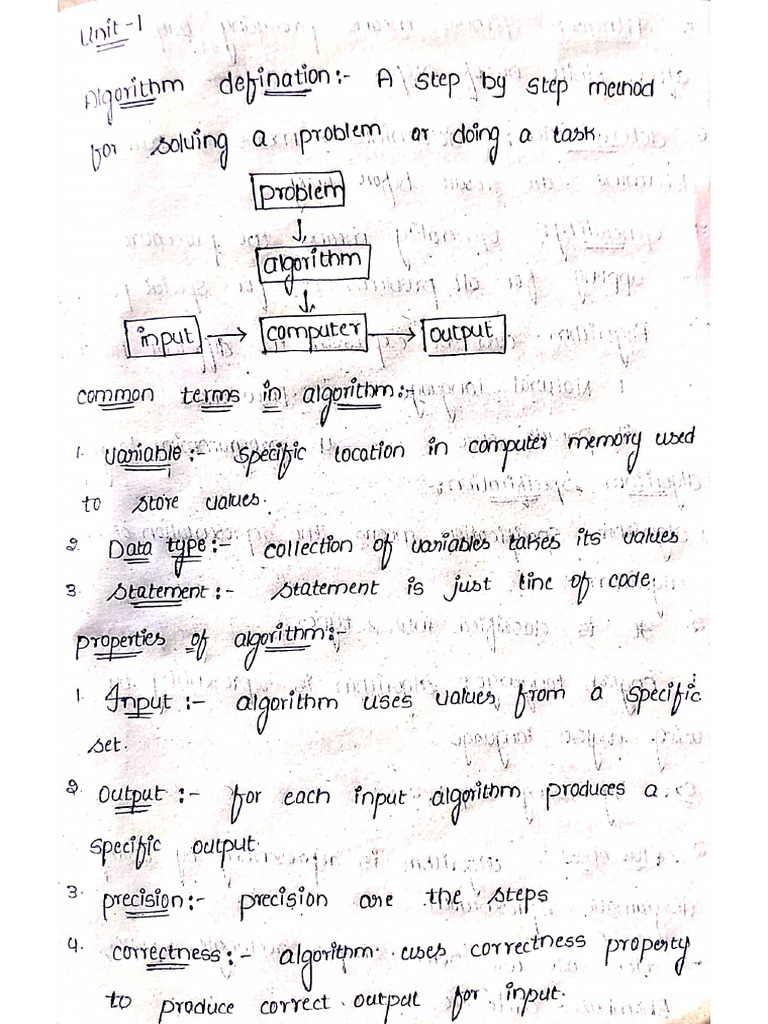 Unit-1
Algorithm defination:- A step by step method
for solving a problem or doing a task.
problem
algorithm
input computer output
common terms in algorithm:-
1. variable:- specific location in computer memory used
to store values.
2. Data type:- collection of variables takes its values
3. Statement:- statement is just line of code.
properties of algorithm:-
1. Input:- algorithm uses values from a specific
set.
2. output:- for each input algorithm produces a
specific output.
3. precision:- precision are the steps
4. correctness:- algorithm uses correctness property
to produce correct output for input.